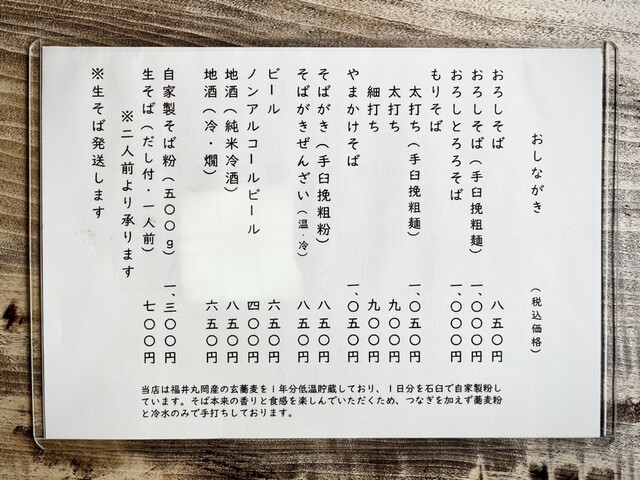 おしながき　（税込価格）
おろしそば　八五〇円
おろしそば（手臼挽粗麺）　一、〇〇〇円
おろしとろろそば　一、〇〇〇円
もりそば
太打ち（手臼挽粗麺）　一、〇五〇円
太打ち　九〇〇円
細打ち　九〇〇円
やまかけそば　一、〇五〇円
そばがき（手臼挽粗粉）　八五〇円
そばがきぜんざい（温・冷）　八五〇円
ビール　六五〇円
ノンアルコールビール　四〇〇円
地酒（純米冷酒）　八五〇円
地酒（冷・燗）　六五〇円
自家製そば粉（五〇〇g）　一、三〇〇円
生そば（だし付・一人前）　七〇〇円
※二人前より承ります
※生そば発送します
当店は福井丸岡産の玄蕎麦を1年分低温貯蔵しており、1日分を石臼で自家製粉し
ています。そば本来の香りと食感を楽しんでいただくため、つなぎを加えず蕎麦粉
と冷水のみで手打ちしております。